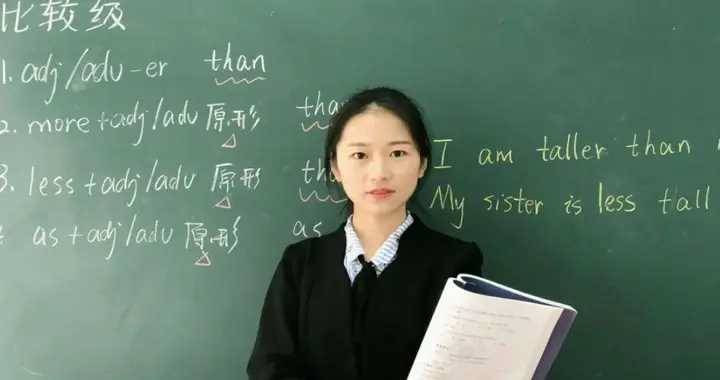 比较级
1. adj/adv-er than
2. more+adj/adv 原形 tha
3. less+adj/adv 原形 th
as+adj/adv 原形 as
I am taller than
My sister is less tall